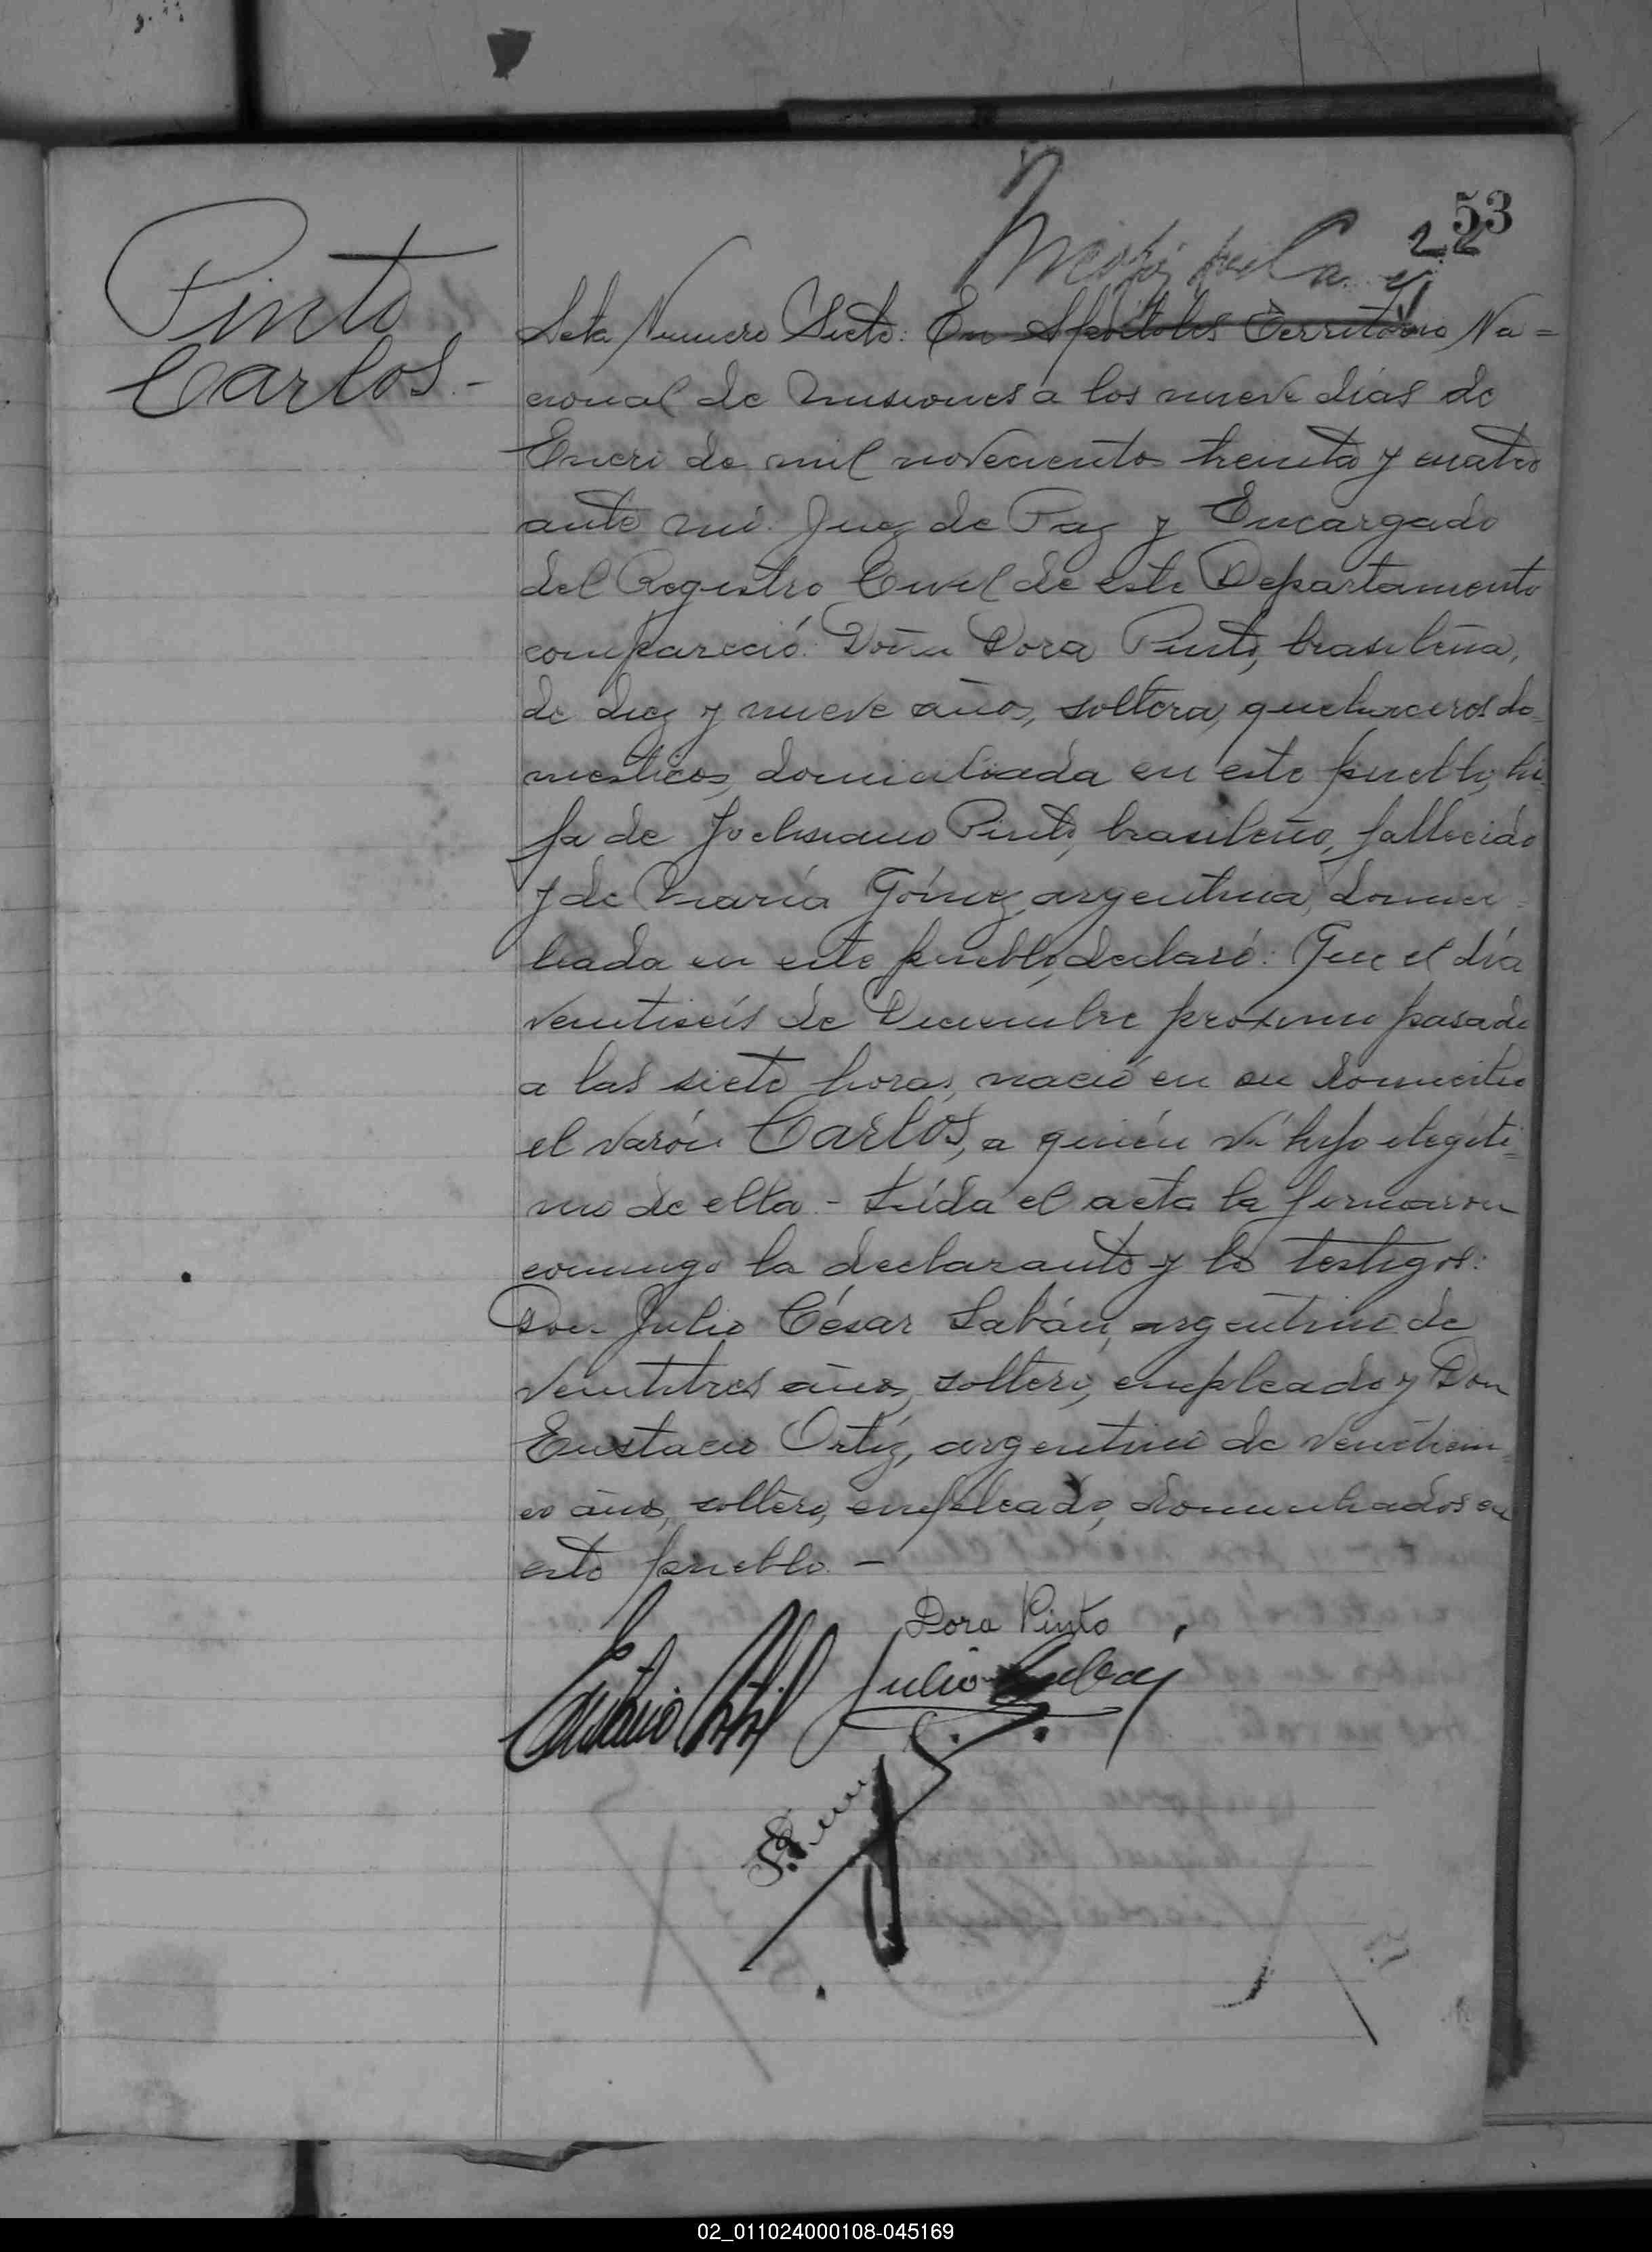 53
22
Pinto
Carlos.-
Acta Numero Siete: En Apóstoles Territorio Na=
cional de Misiones a los nueve días de
Enero de mil novecientos treinta y cuatro
ante mi. Juez de Paz y Encargado
del Registro Civil de este Departamento
compareció: Doña Dora Pinto, brasileña,
de diez y nueve años, soltera, quehaceres do=
mesticos, domiciliada en este pueblo, hi=
ja de Pinto, brasileño, fallecido
y de María Gómez, argentina, domici=
liada en este pueblo, declaró: Que el día
veintiseis de Diciembre proximo pasado
a las siete horas, nació en su domicilio
el varón Carlos, a quién ví hijo ilegíti=
mo de ella.- Leída el acta la firmaron
conmigo la declarante y los testigos:
Don Julio César Labán, argentino de
veintitres años, soltero, empleado y Don
Eustacio Ortíz, argentino de veinticin=
co años, soltero, empleado, domiciliados en
este pueblo.-
Dora Pinto
Eustacio Ortiz Julio Labán
02_011024000108-045169